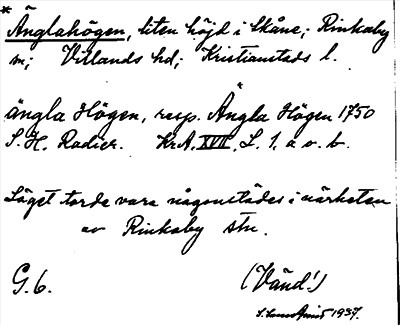 * Änglahögen, liten höjd i Skåne; Rinkaby
n; Villands hd; Kristianstads l.
ängla Högen, resp. Ängla Högen 1750
S. H. Radier. KrA, XVII, L. 1, a o. b.
Läget torde vara någonstädes i närheten
av Rinkaby stn.
G. 6. (Vänd!)
1937.